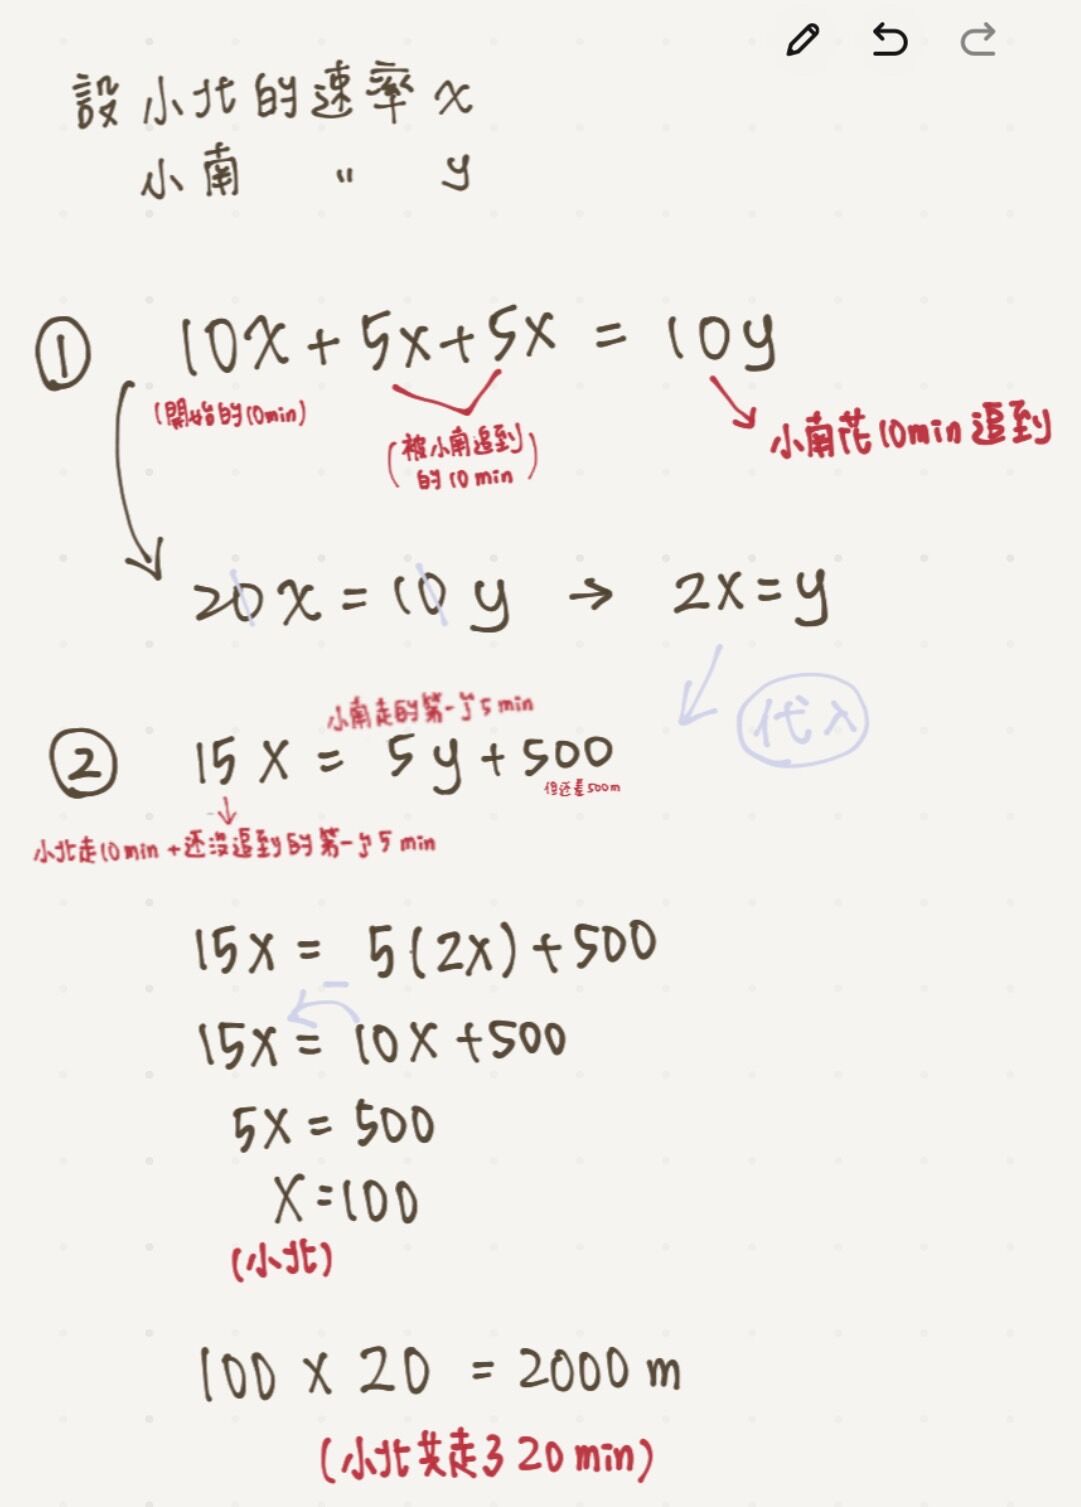 設小北的速率 x
小南 〃 y
① 10x + 5x + 5x = 10y
(開始的10min)
(被小南追到
的10min)
小南花10min追到
20x = 10y → 2x = y
代入
小南走的第一个5min
② 15x = 5y + 500
但还差500m
小北走10min + 还沒追到的第一个5min
15x = 5(2x) + 500
−
15x = 10x + 500
5x = 500
x = 100
(小北)
100 x 20 = 2000 m
(小北共走了20min)